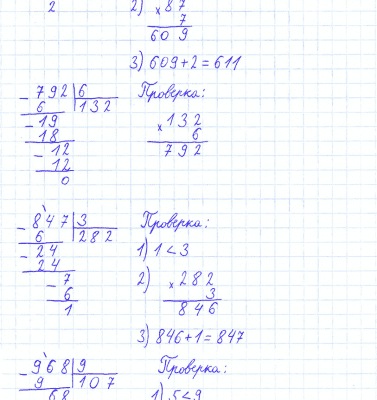 2
2) × 87
7
609
3) 609 + 2 = 611
- 792 | 6
6 | 132
- 19
18
- 12
12
0
Проверка:
× 132
6
792
- 847 | 3
6 | 282
- 24
24
- 7
6
1
Проверка:
1) 1 < 3
2) × 282
3
846
3) 846 + 1 = 847
- 968 | 9
9 | 107
68
Проверка:
1) 5 < 9